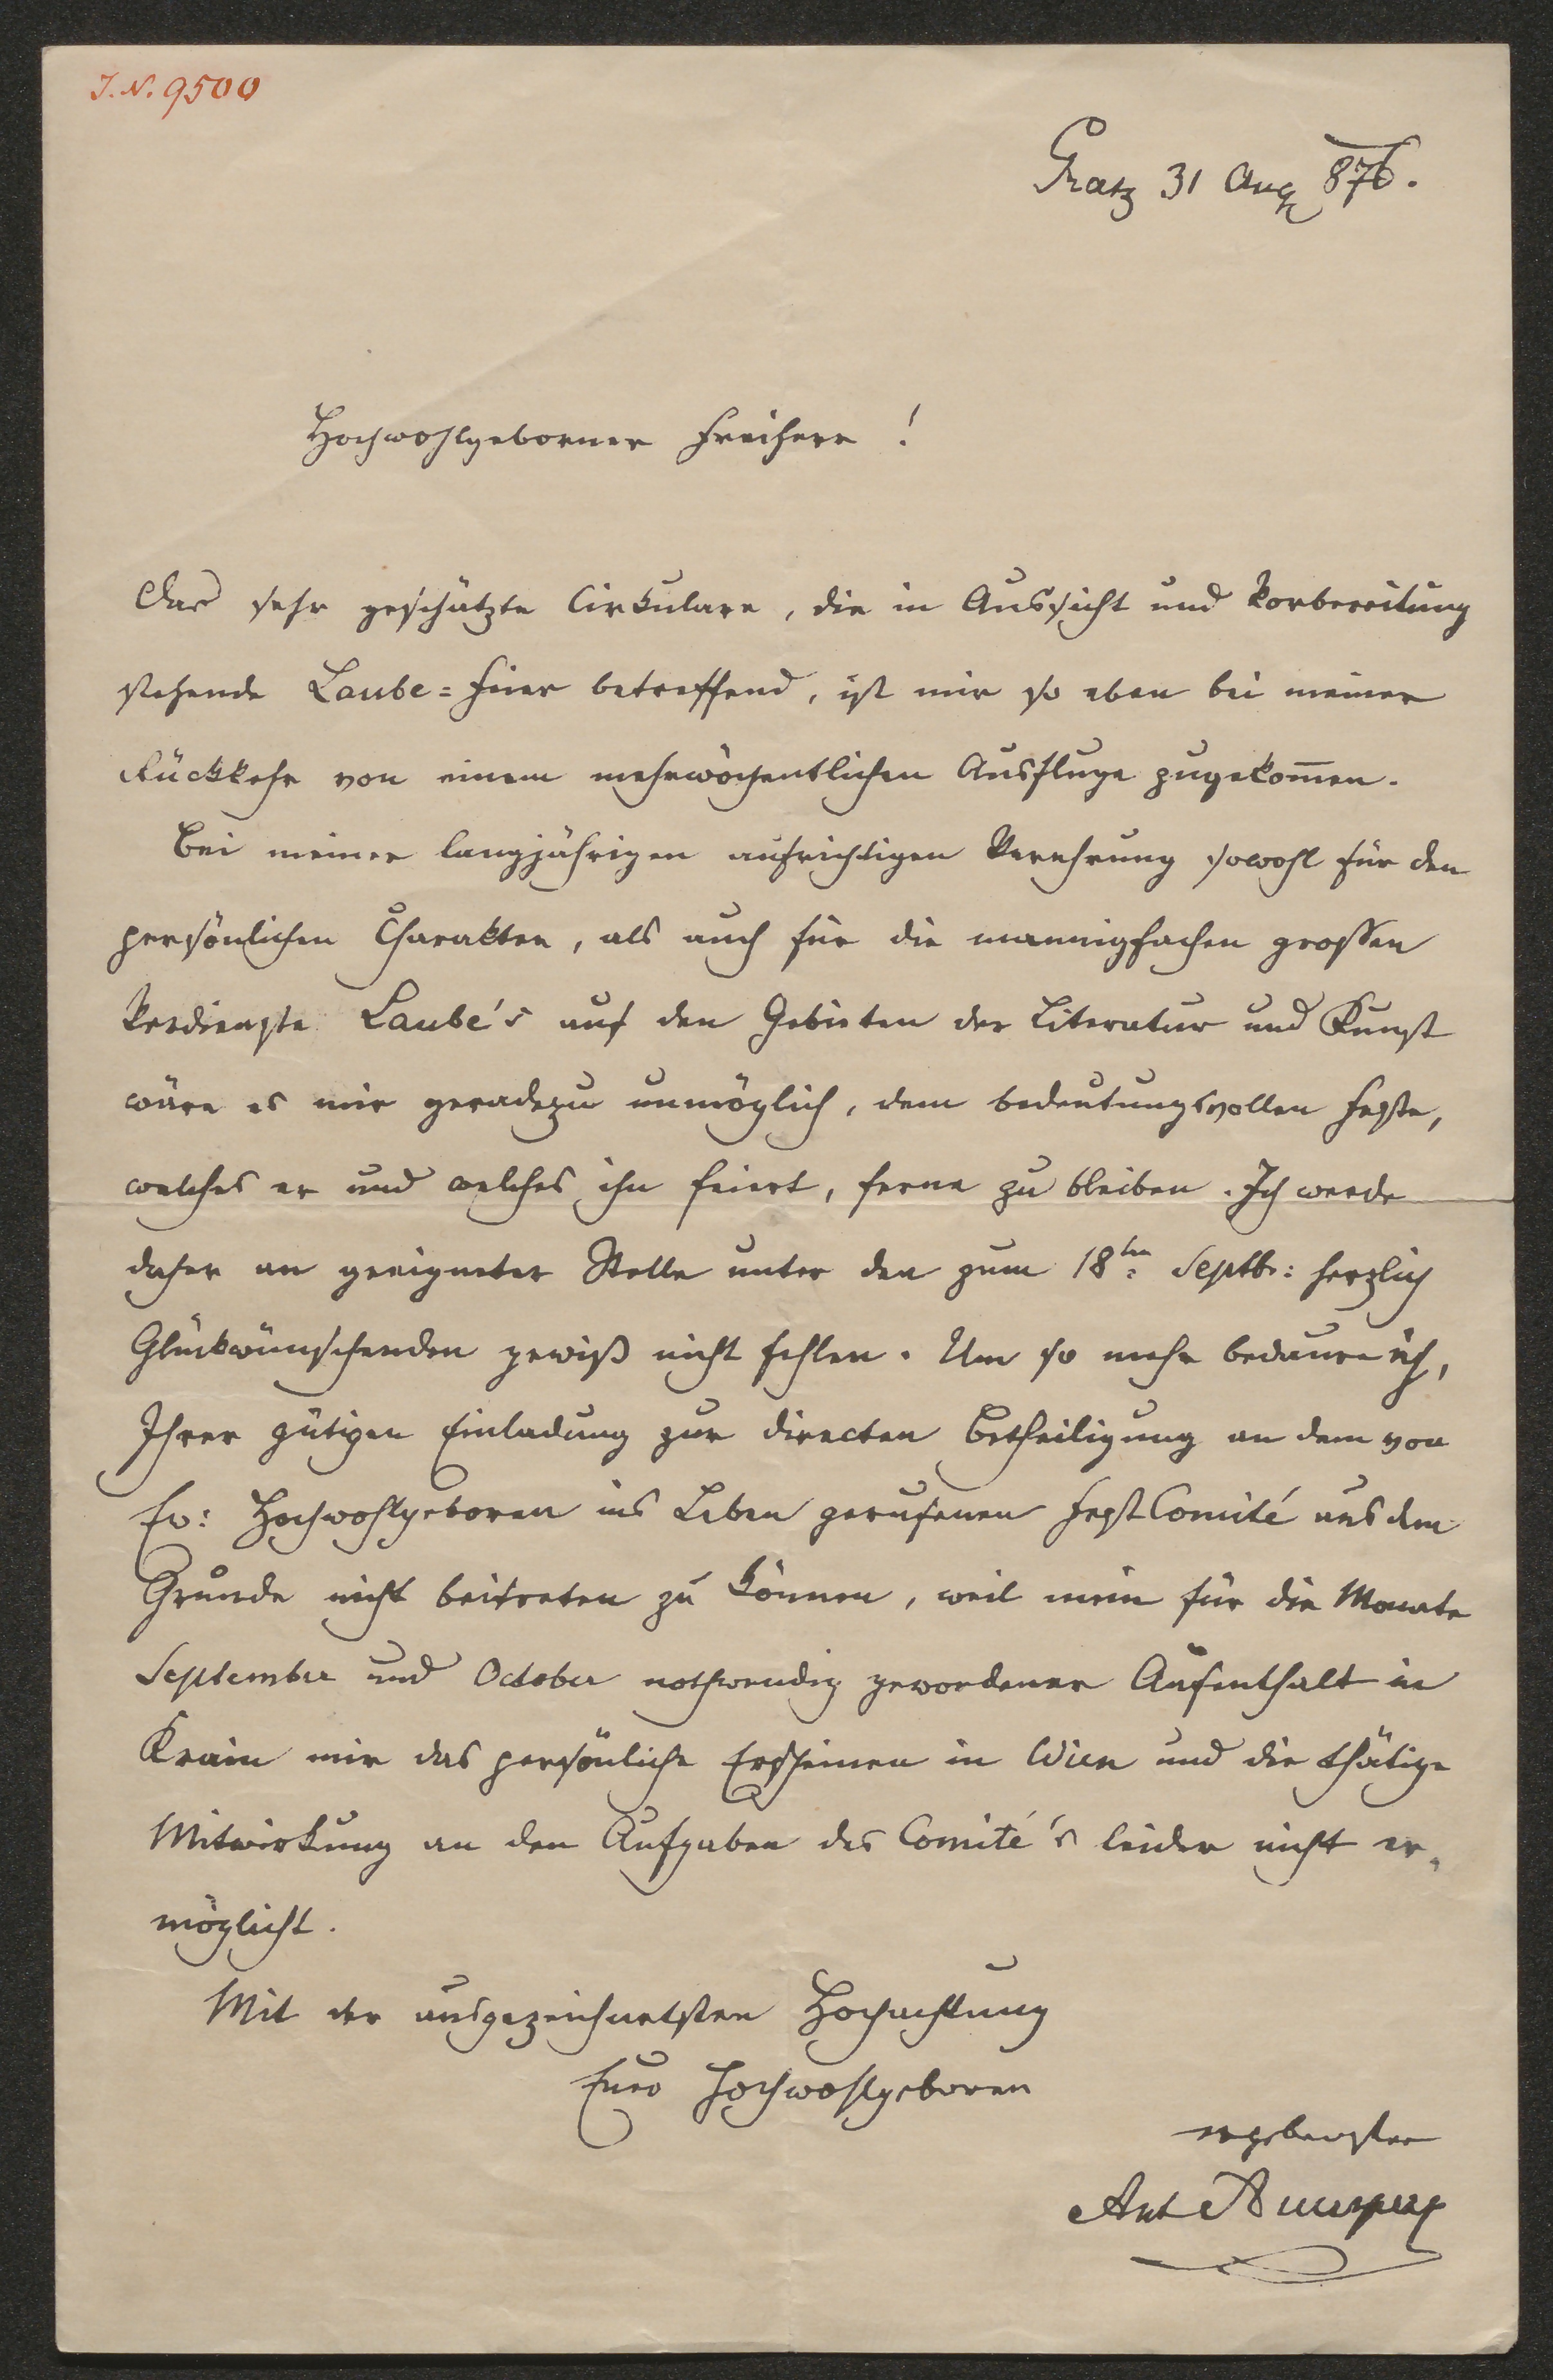 I. N. 9500
Gratz 31 Aug 876.
Hochwohlgeborner Freiherr !
Das sehr geschätzte Cirkulare, die in Aussicht und Vorbereitung
stehende Laube=Feier betreffend, ist mir so eben bei meiner
Rückkehr von einem mehrwöchentlichen Ausfluge zugekom̅en.
Bei meiner langjährigen aufrichtigen Verehrung sowohl für den
persönlichen Charakter, als auch für die mannigfachen großen
Verdienste Laube's auf den Gebieten der Literatur und Kunst
wäre es mir geradezu unmöglich, dem bedeutungsvollen Feste,
welches er und welches ihn feiert, ferne zu bleiben. Ich werde
daher an geeigneter Stelle unter den zum 18ten Septbr: herzlich
Glückwünschenden gewiß nicht fehlen. Um so mehr bedaure ich,
Ihrer gütigen Einladung zur directen Betheiligung an dem von
Ew: Hochwohlgeboren ins Leben gerufenen FestComité aus dem
Grunde nicht beitreten zu können, weil mein für die Monate
September und October nothwendig gewordener Aufenthalt in
Krain mir das persönliche Erscheinen in Wien und die thätige
Mitwirkung an den Aufgaben des Comité's leider nicht er-
möglicht.
Mit der ausgezeichnetsten Hochachtung
Euer Hochwohlgeboren
ergebenster
Ant Auersperg